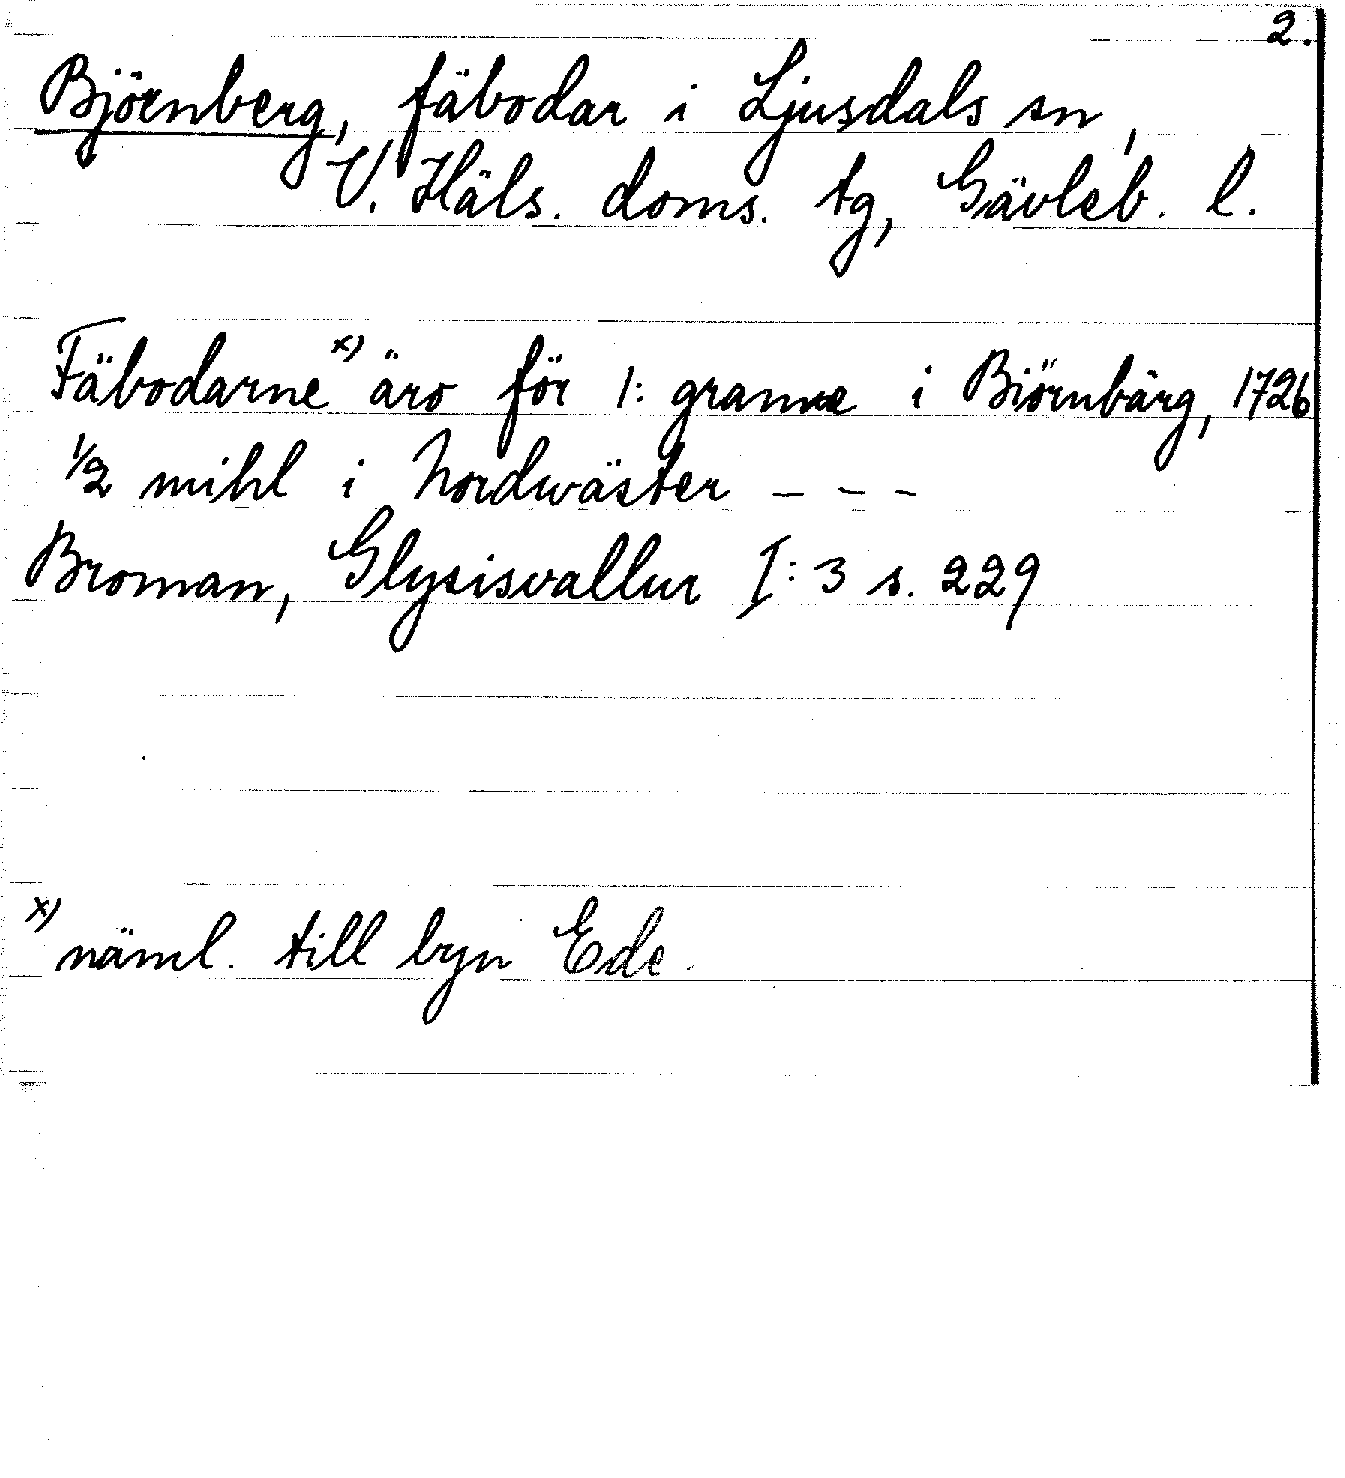 2.
Björnberg, fäbodar i Ljusdals sn,
V. Häls. doms. tg, Gävleb. l.
Fäbodarne x) äro för 1: granne i Biörnbärg, 1726
1/2 mihl i Nordwäster - - -
Broman, Glysisvallur I: 3 s. 229
x) näml. till byn Ede.